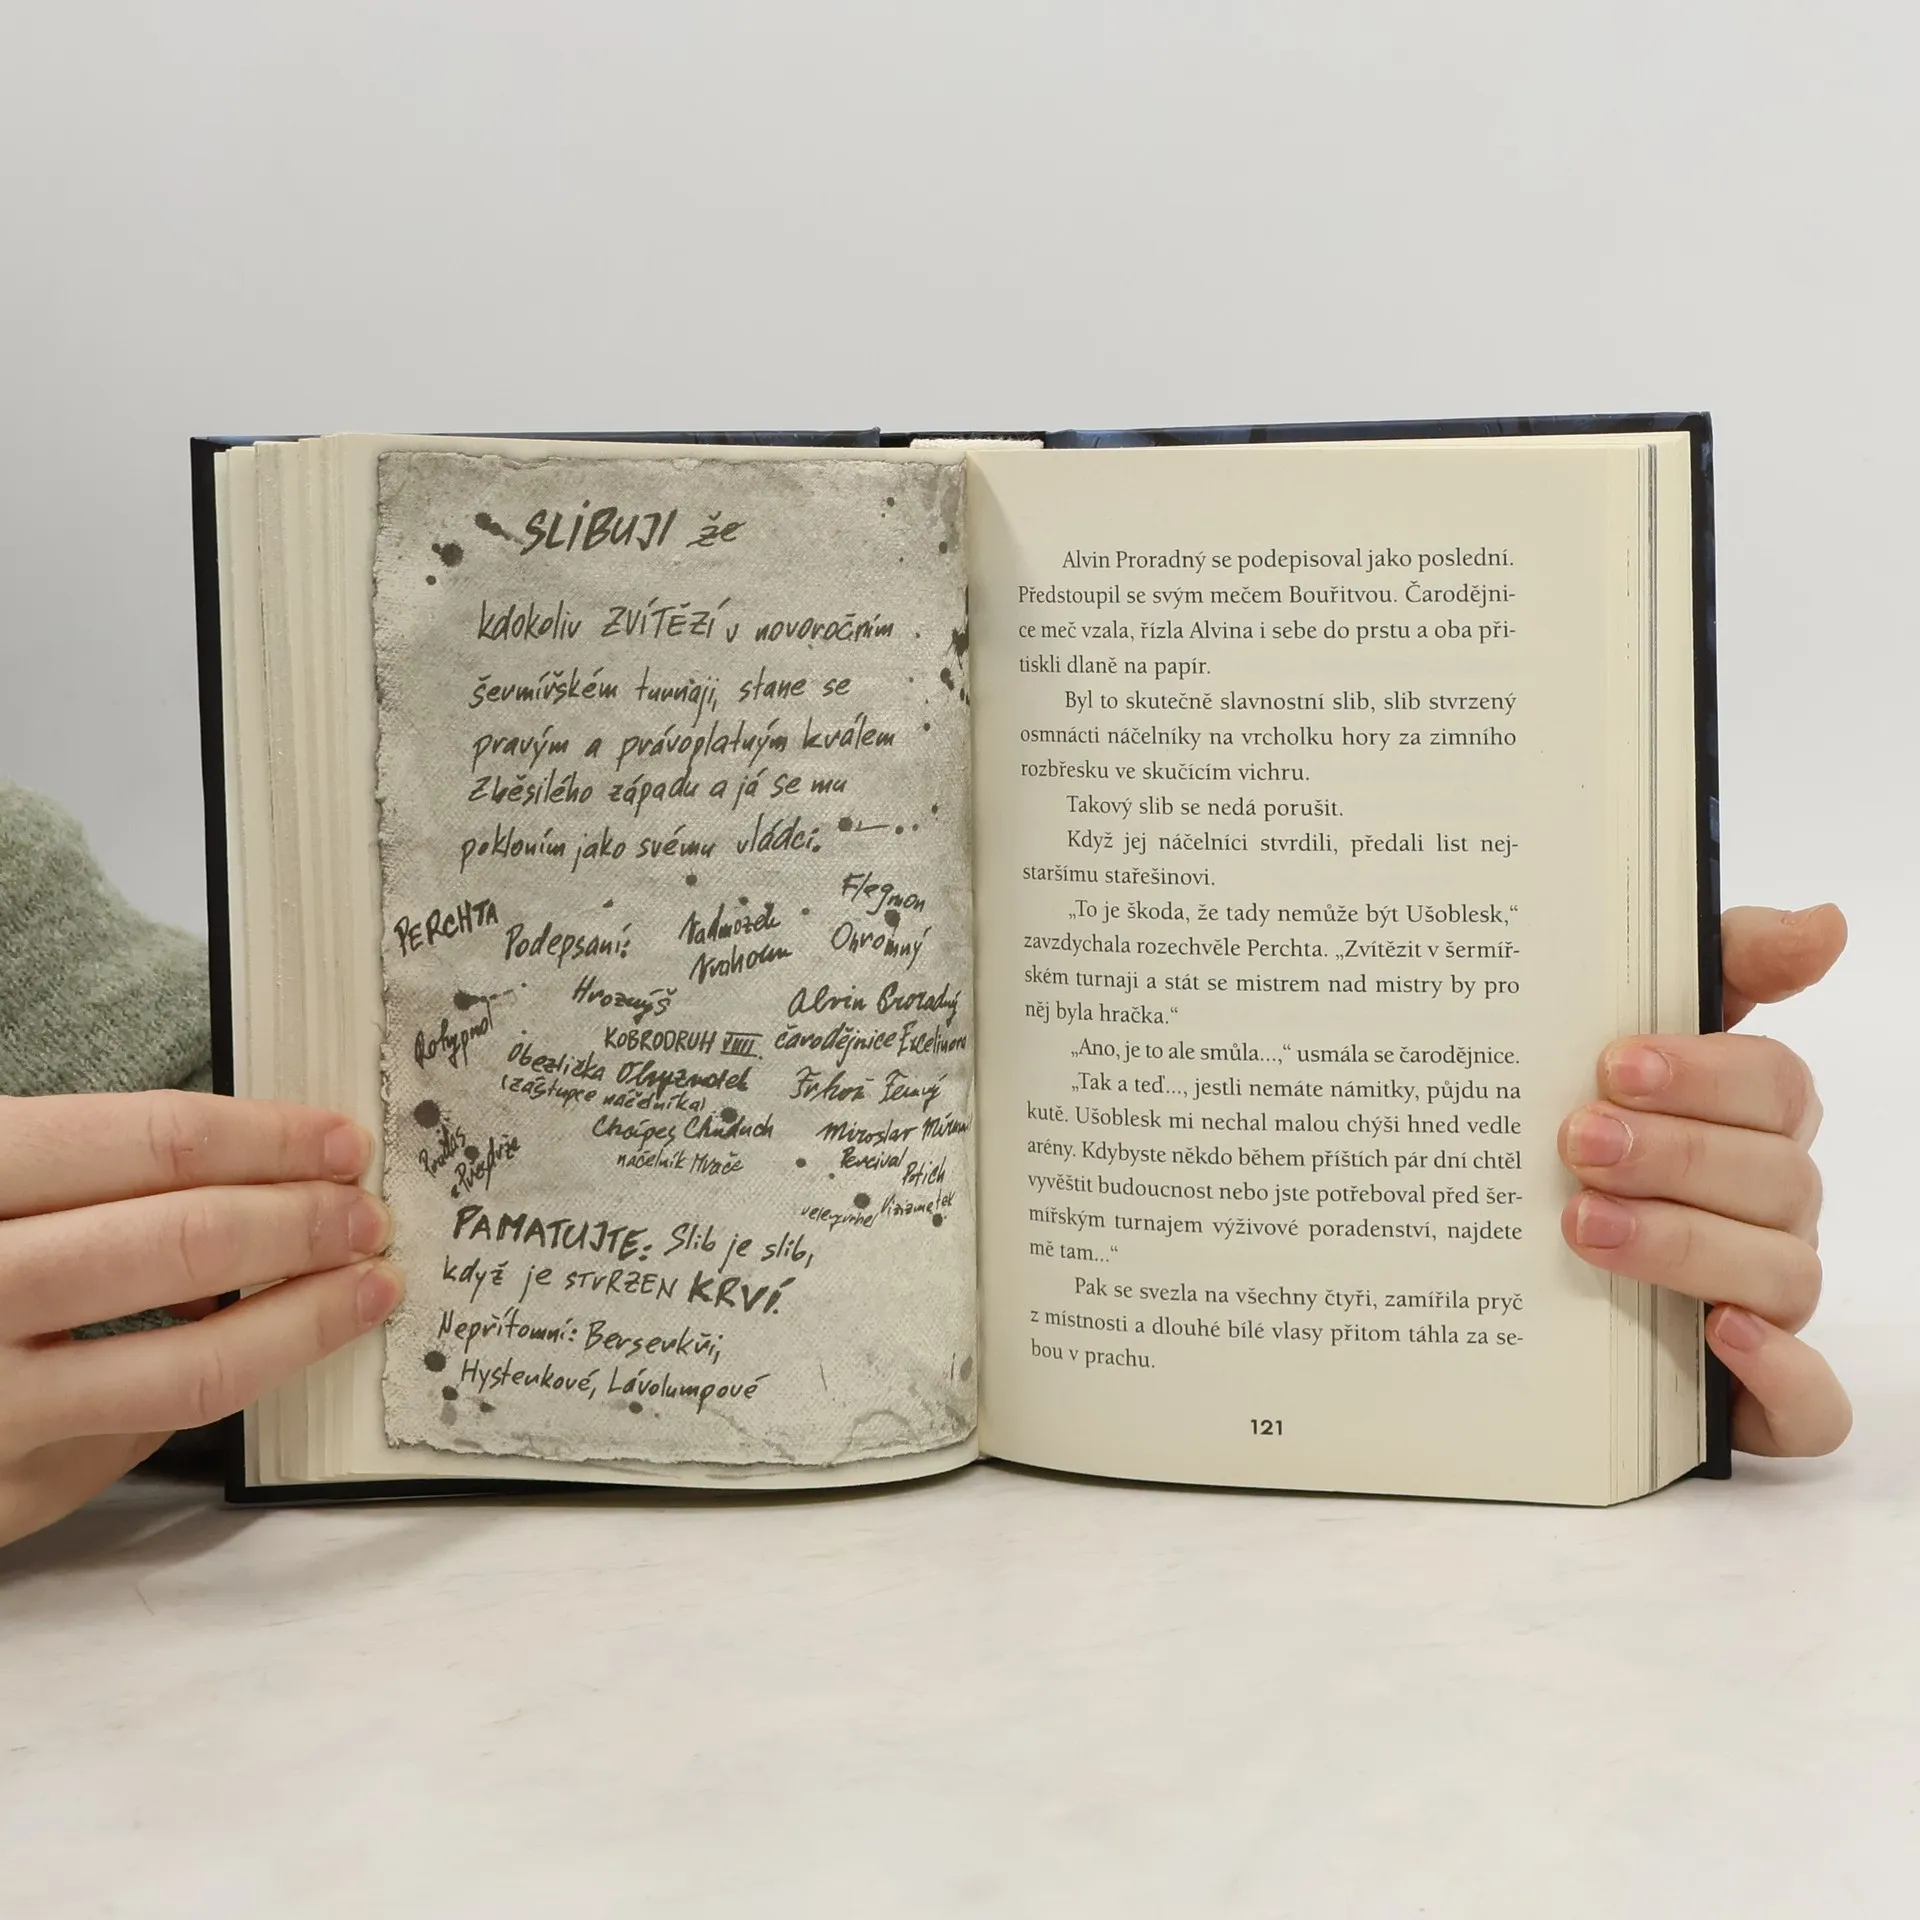 SLIBUJI že
kdokoliv ZVÍTĚZÍ v novoročním
šermířském turnaji, stane se
pravým a právoplatným králem
Zběsilého západu a já se mu
pokloním jako svému vládci.
PERCHTA
Podepsaní:
Nadmozek
Flegmon
Ohromný
Hroznýš
Alvin Proradný
Rohypnol
KOBRODRUH VIII.
čarodějnice Excelinora
Obezlička
(zástupce náčelníka)
Chuduch
náčelník Mlače
Miroslav
Percival
Potich
PAMATUJTE: Slib je slib,
když je STVRZEN KRVÍ.
Nepřítomní: Berserkři,
Hysterkové, Lávolumpové
Alvin Proradný se podepisoval jako poslední.
Předstoupil se svým mečem Bouřitvou. Čarodějni-
ce meč vzala, řízla Alvina i sebe do prstu a oba při-
tiskli dlaně na papír.
Byl to skutečně slavnostní slib, slib stvrzený
osmnácti náčelníky na vrcholku hory za zimního
rozbřesku ve skučícím vichru.
Takový slib se nedá porušit.
Když jej náčelníci stvrdili, předali list nej-
staršímu stařešinovi.
„To je škoda, že tady nemůže být Ušoblesk,“
zavzdychala rozechvěle Perchta. „Zvítězit v šermíř-
ském turnaji a stát se mistrem nad mistry by pro
něj byla hračka.“
„Ano, je to ale smůla...,“ usmála se čarodějnice.
„Tak a teď..., jestli nemáte námitky, půjdu na
kutě. Ušoblesk mi nechal malou chýši hned vedle
arény. Kdybyste někdo během příštích pár dní chtěl
vyvěštit budoucnost nebo jste potřeboval před šer-
mířským turnajem výživové poradenství, najdete
mě tam...“
Pak se svezla na všechny čtyři, zamířila pryč
z místnosti a dlouhé bílé vlasy přitom táhla za se-
bou v prachu.
121